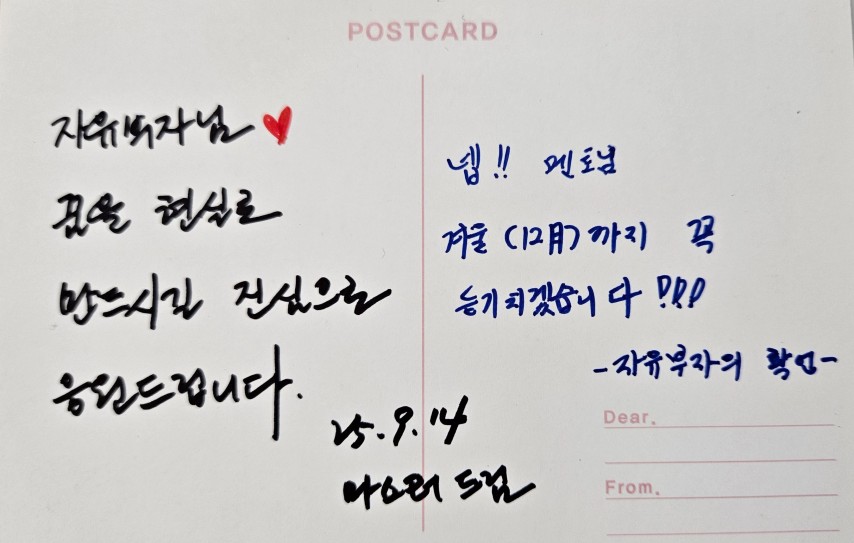 POSTCARD
자유부자님
꿈을 현실로
만드시길 진심으로
응원드립니다.
25.9.14
마스터 드림
넵!! 멘토님
겨울(12月)까지 꼭
등기치겠습니다!!!
-자유부자의 확언-
Dear.
From.